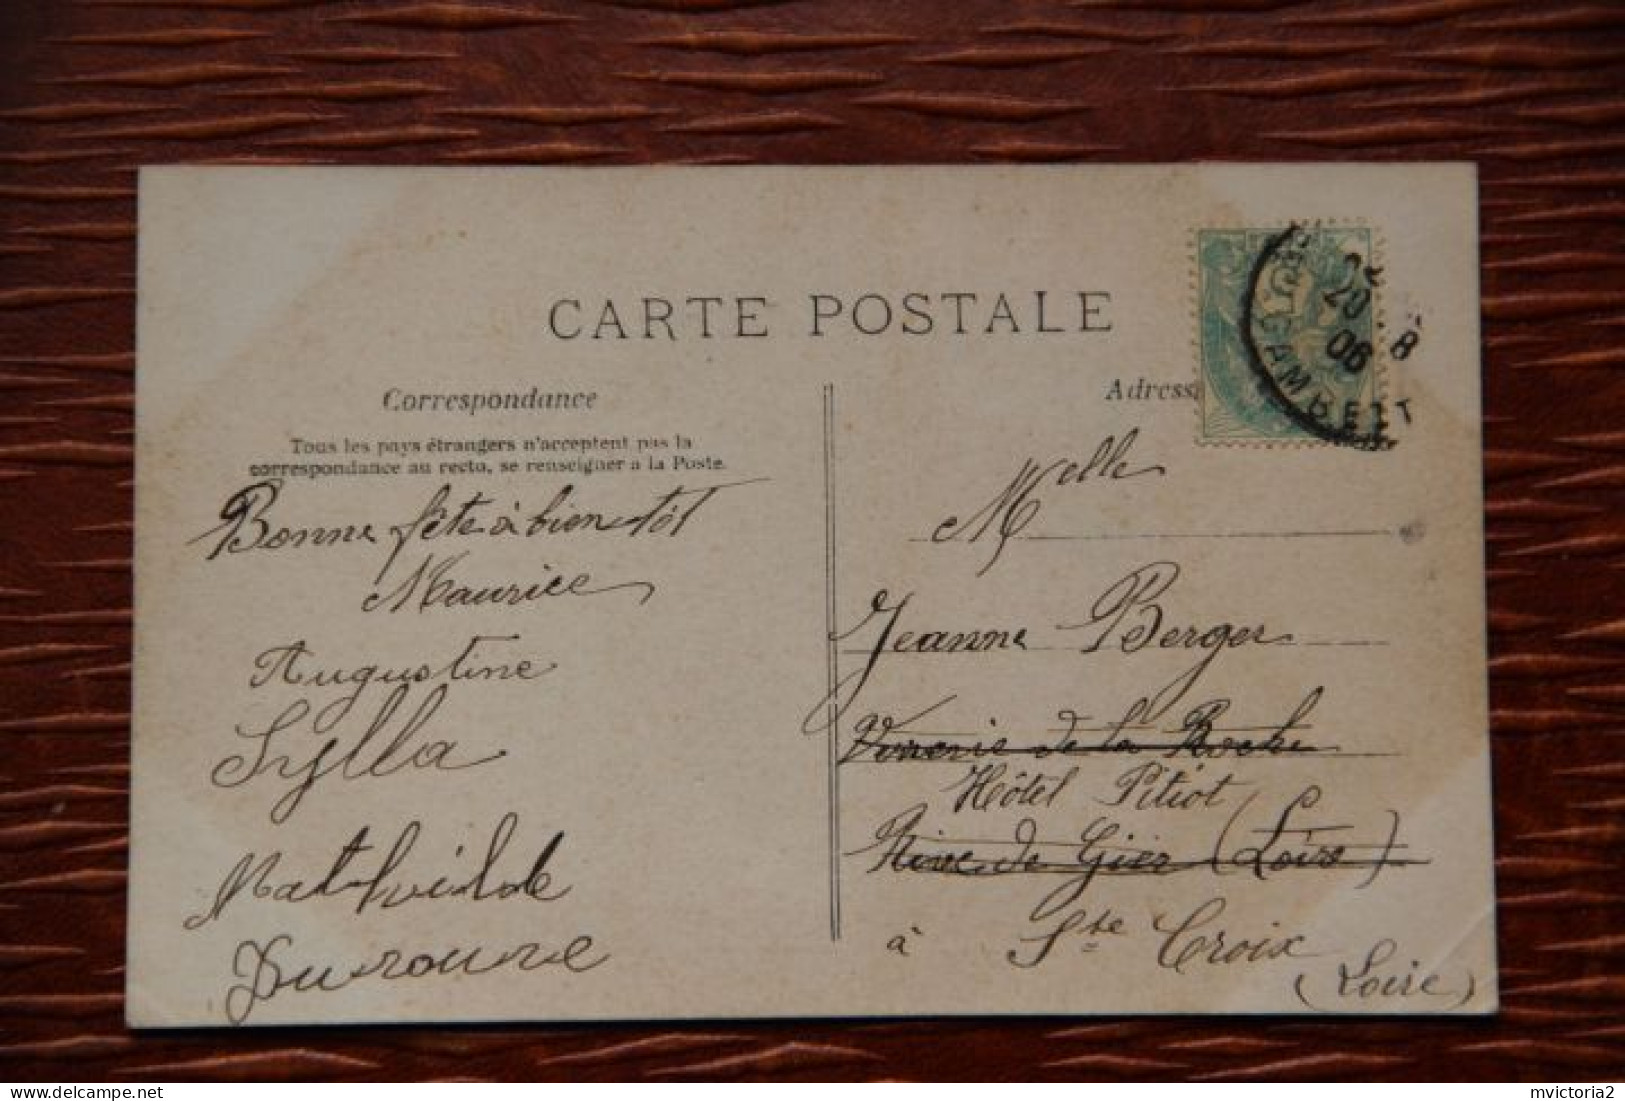 CARTE POSTALE
Correspondance
Tous les pays étrangers n'acceptent pas la
correspondance au recto, se renseigner a la Poste.
Bonne fête à bien tôt
Maurice
Augustine
Sylla
Mathilde
Adress
Melle
Jeanne Berger
de la Roche
Hôtel Pitiot
Rive de Gier (Loire)
à Ste Croix
(Loire)
20 8
06
GAMBETT
delcampe.net
mvictoria2